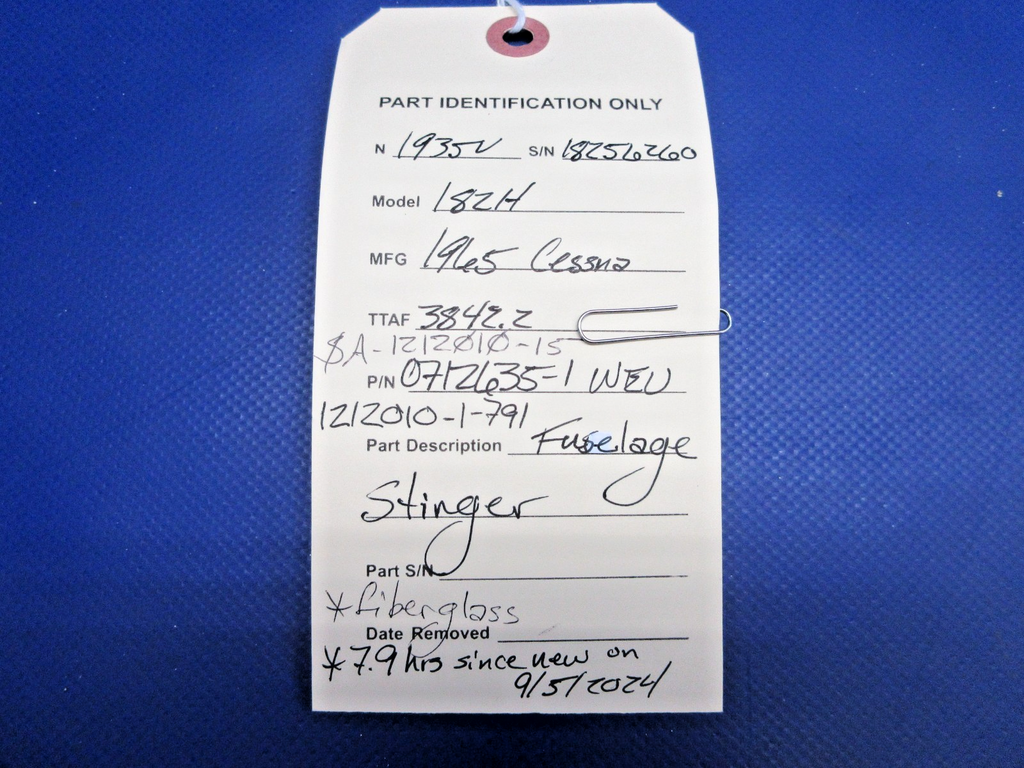 PART IDENTIFICATION ONLY
N 1935V S/N 18256260
Model 182H
MFG 1965 Cessna
TTAF 3842.2
SA-1212010-15
P/N 0712635-1 WEU
1212010-1-791
Part Description Fuselage
Stinger
Part S/N
* fiberglass
Date Removed
* 7.9 hrs since new on
9/5/2024